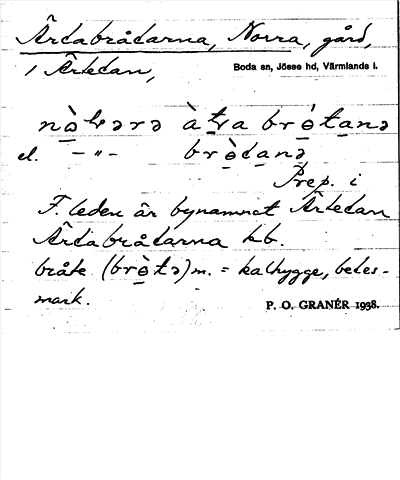 Ärtabråtarna, Norra, gård,
i Ärtetan,
Boda sn, Jösse hd, Värmlands l.
el. - " -
Prep. i
F. leden är bynamnet Ärtetan
Ärtabråtarna hb.
bråte m. = kalhygge, betes-
mark.
P. O. GRANÉR 1938.